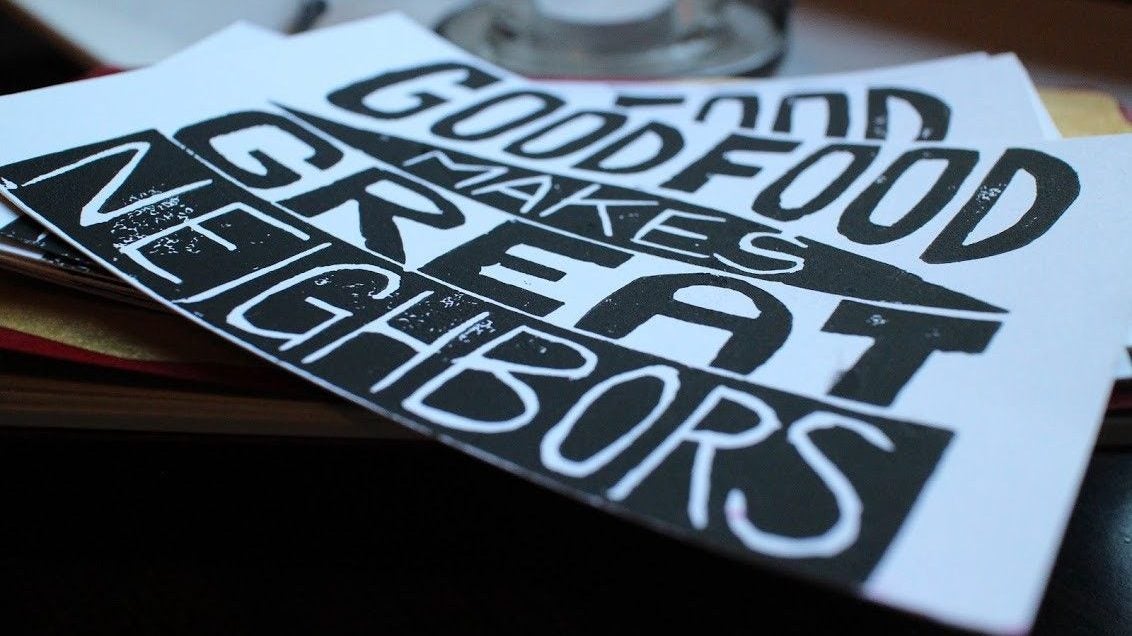 GOOD FOOD
MAKES
GREAT
NEIGHBORS
FOOD